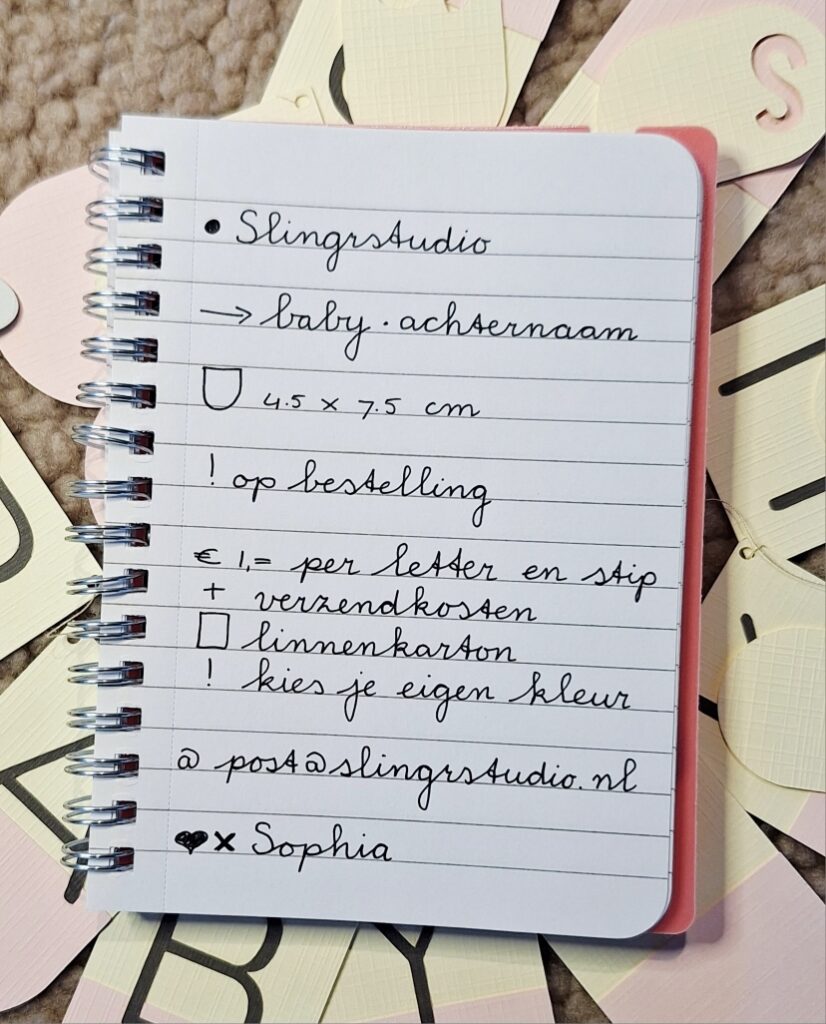 • Slingrstudio
→ baby · achternaam
4.5 x 7.5 cm
! op bestelling
€ 1,= per letter en stip
+ verzendkosten
linnenkarton
! kies je eigen kleur
@ post@slingrstudio.nl
♥x Sophia
S
B Y